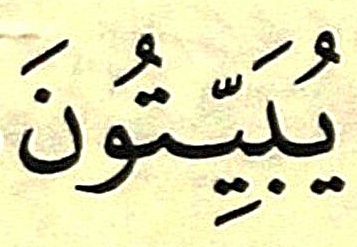 يُبَيِّتُونَ